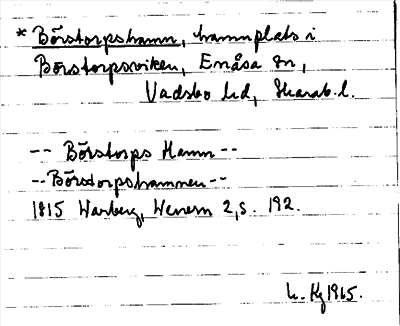 * Börstorpshamn, hamnplats i
Börstorpsviken, Enåsa sn,
Vadsbo hd, Skarab. l.
-- Börstorps Hamn --
-- Börstorpshamnen --
1815 Warberg, Wenern 2, s. 192.
Kg 1965.